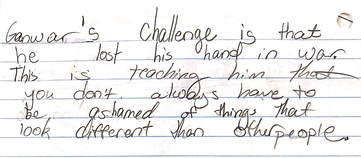 Ganwar's Challenge is that
he lost his hand in war.
This is teaching him that
you don't always have to
be ashamed of things that
look different than other people.